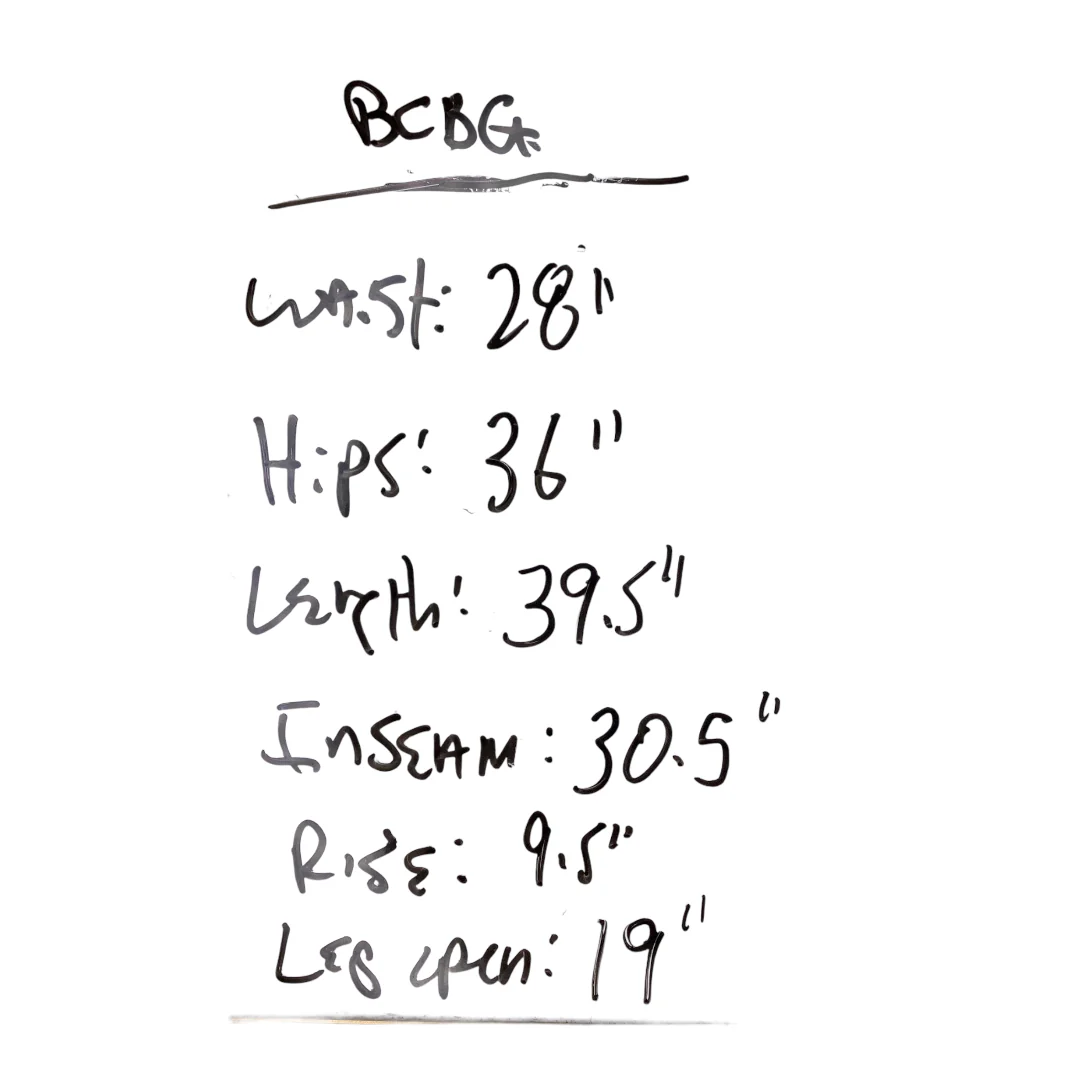 BCBG
Waist: 28"
Hips: 36"
Length: 39.5"
Inseam: 30.5"
Rise: 9.5"
Leg open: 19"